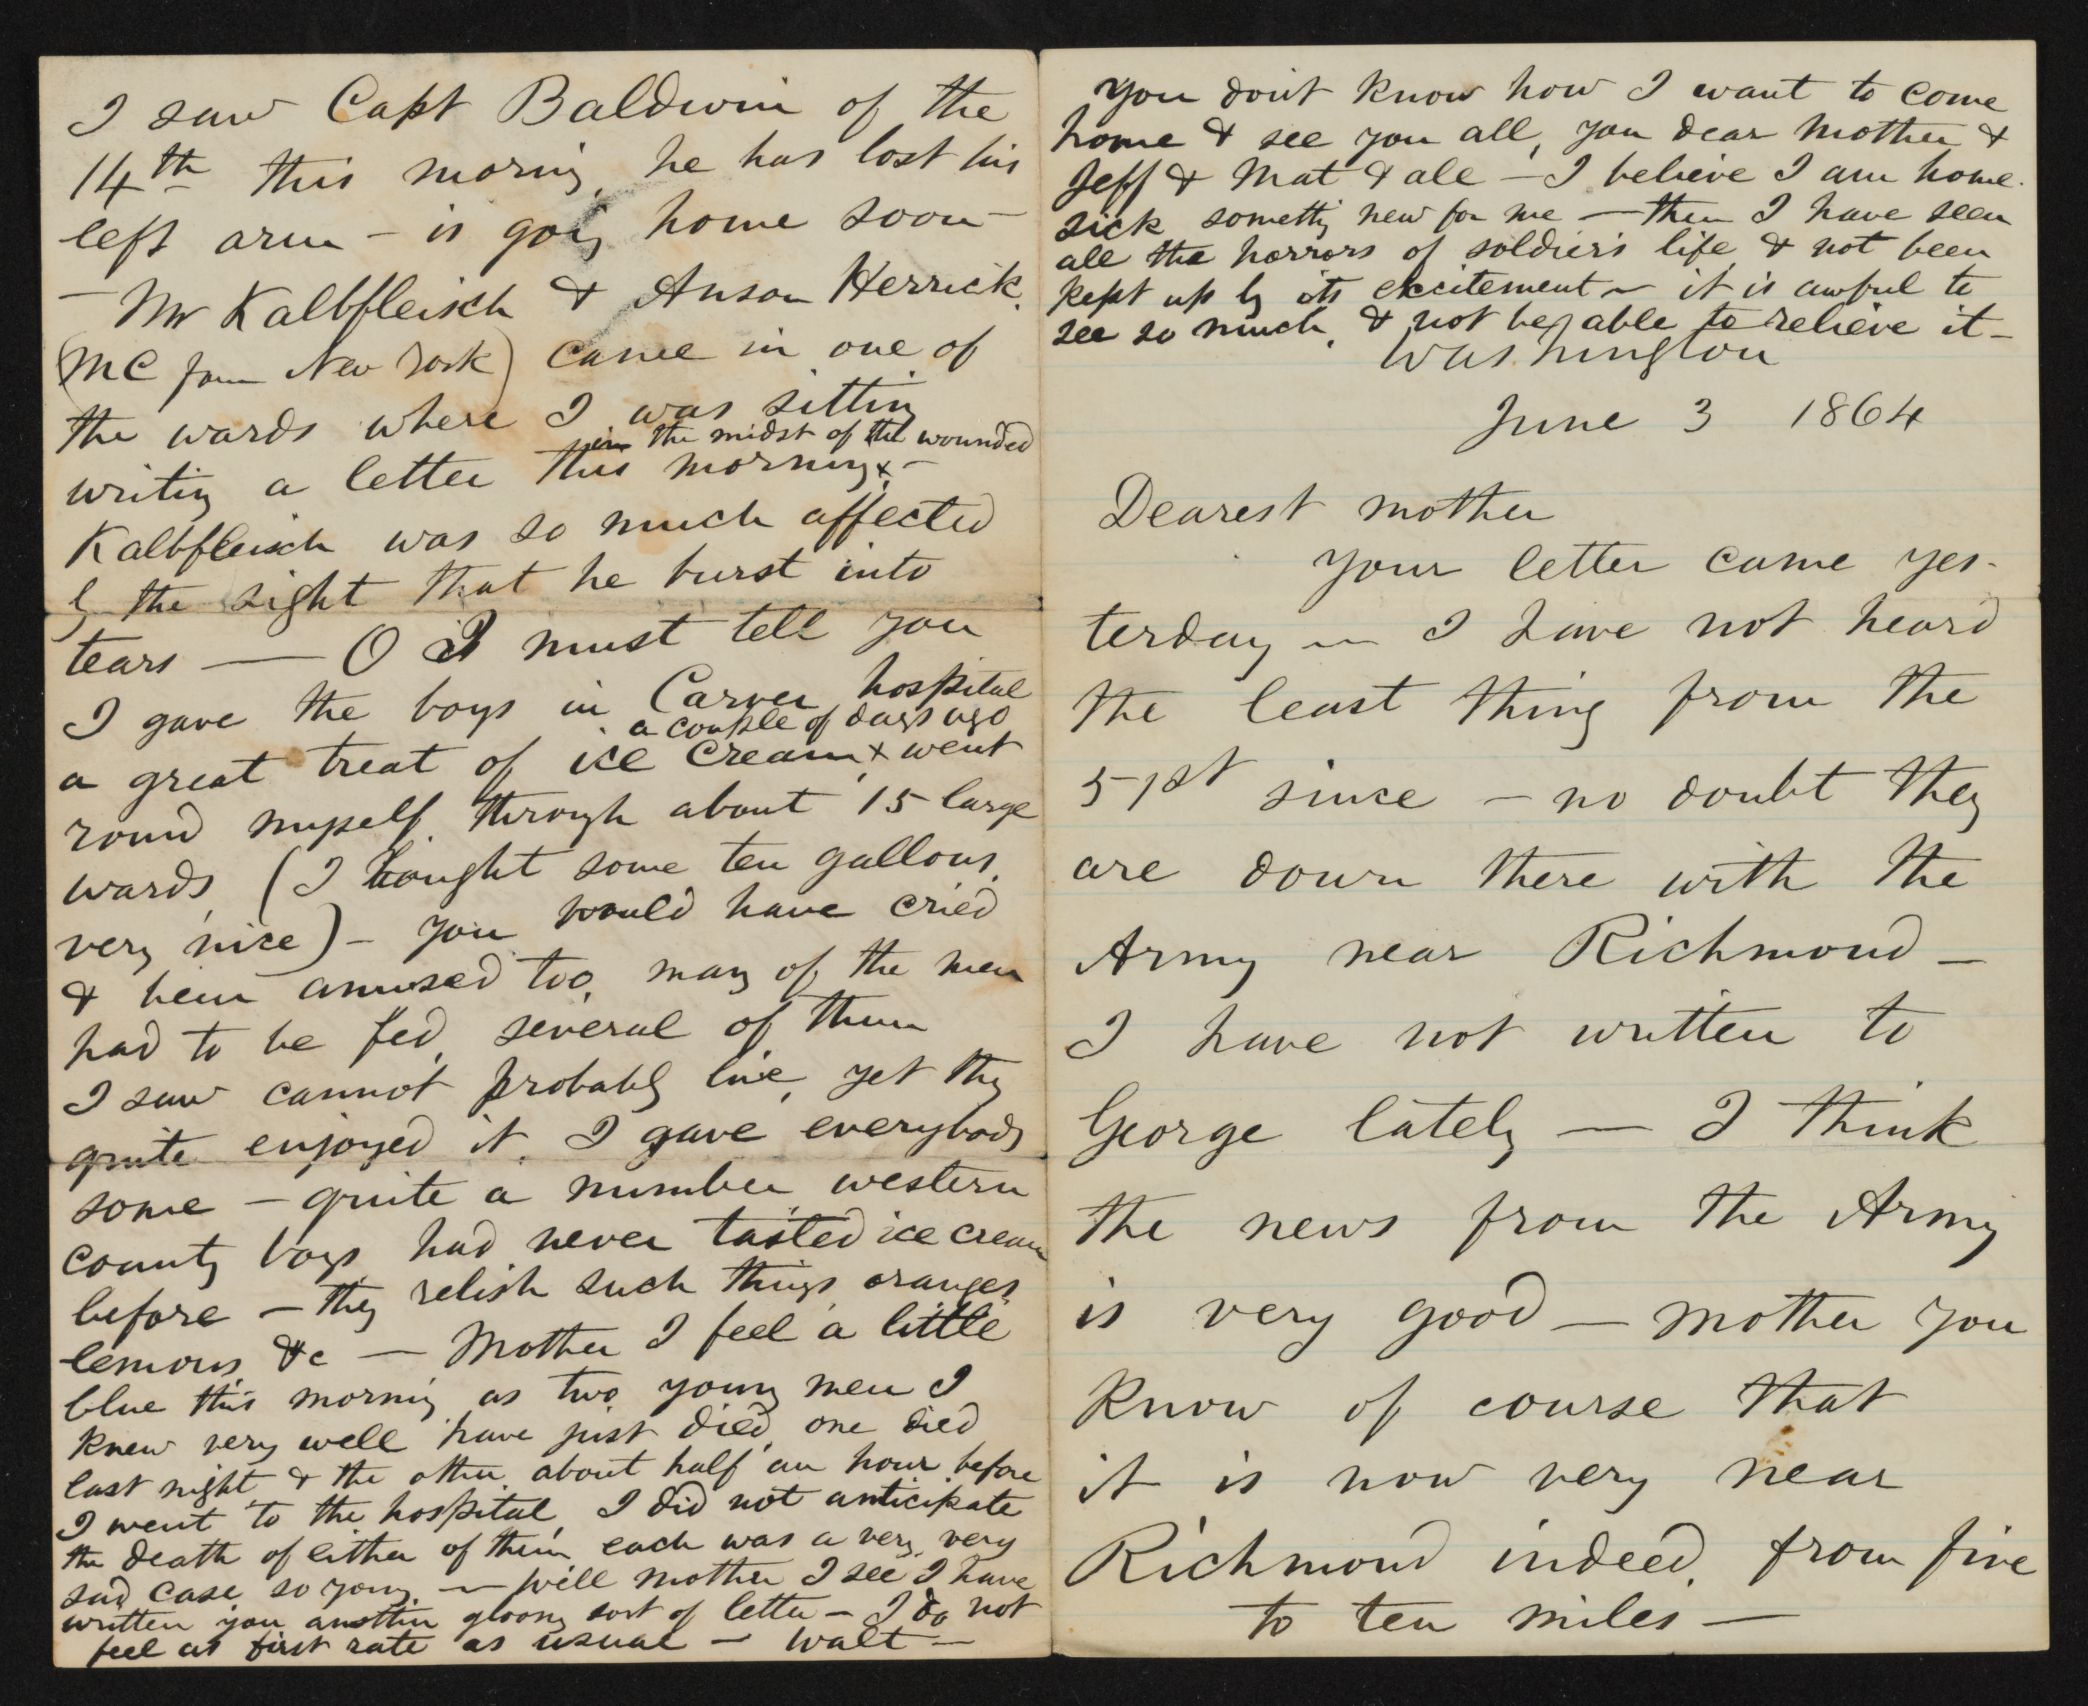 I saw Capt Baldwin of the
14th this morning, he has lost his
left arm – is going home soon –
– Mr Kalbfleisch & Anson Herrick,
(M C from New York) came in one of
the wards where I was sitting
in the midst of the wounded
writing a letter this morning, –
Kalbfleisch was so much affected
by the sight that he burst into
tears — O I must tell you
I gave the boys in Carver hospital
a couple of days ago
a great treat of ice cream, & went
round myself, through about 15 large
wards, (I bought some ten gallons,
very nice) – you would have cried
& been amused too, many of the men
had to be fed, several of them
I saw cannot probably live, yet they
quite enjoyed it, I gave everybody
some – quite a number western
county boys had never tasted ice cream
before – they relish such things, oranges,
lemons, &c – Mother I feel a little
blue this morning, as two young men I
knew very well have just died, one died
last night, & the other about half an hour before
I went to the hospital, I did not anticipate
the death of either of them, each was a very, very
sad case, so young – well mother I see I have
written you another gloomy sort of letter – I do not
feel as first rate as usual – Walt –
You don't know how I want to come
home & see you all, you dear Mother &
Jeff & Mat & all – I believe I am home-
sick, something new for me – then I have seen
all the horrors of soldier's life & not been
kept up by its excitement – it is awful to
see so much, & not be able to relieve it –
Washington
June 3 1864
Dearest mother
Your letter came yes-
terday – I have not heard
the least thing from the
51st since – no doubt they
are down there with the
Army near Richmond –
I have not written to
George lately – I think
the news from the Army
is very good – mother you
know of course that
it is now very near
Richmond indeed, from five
to ten miles –